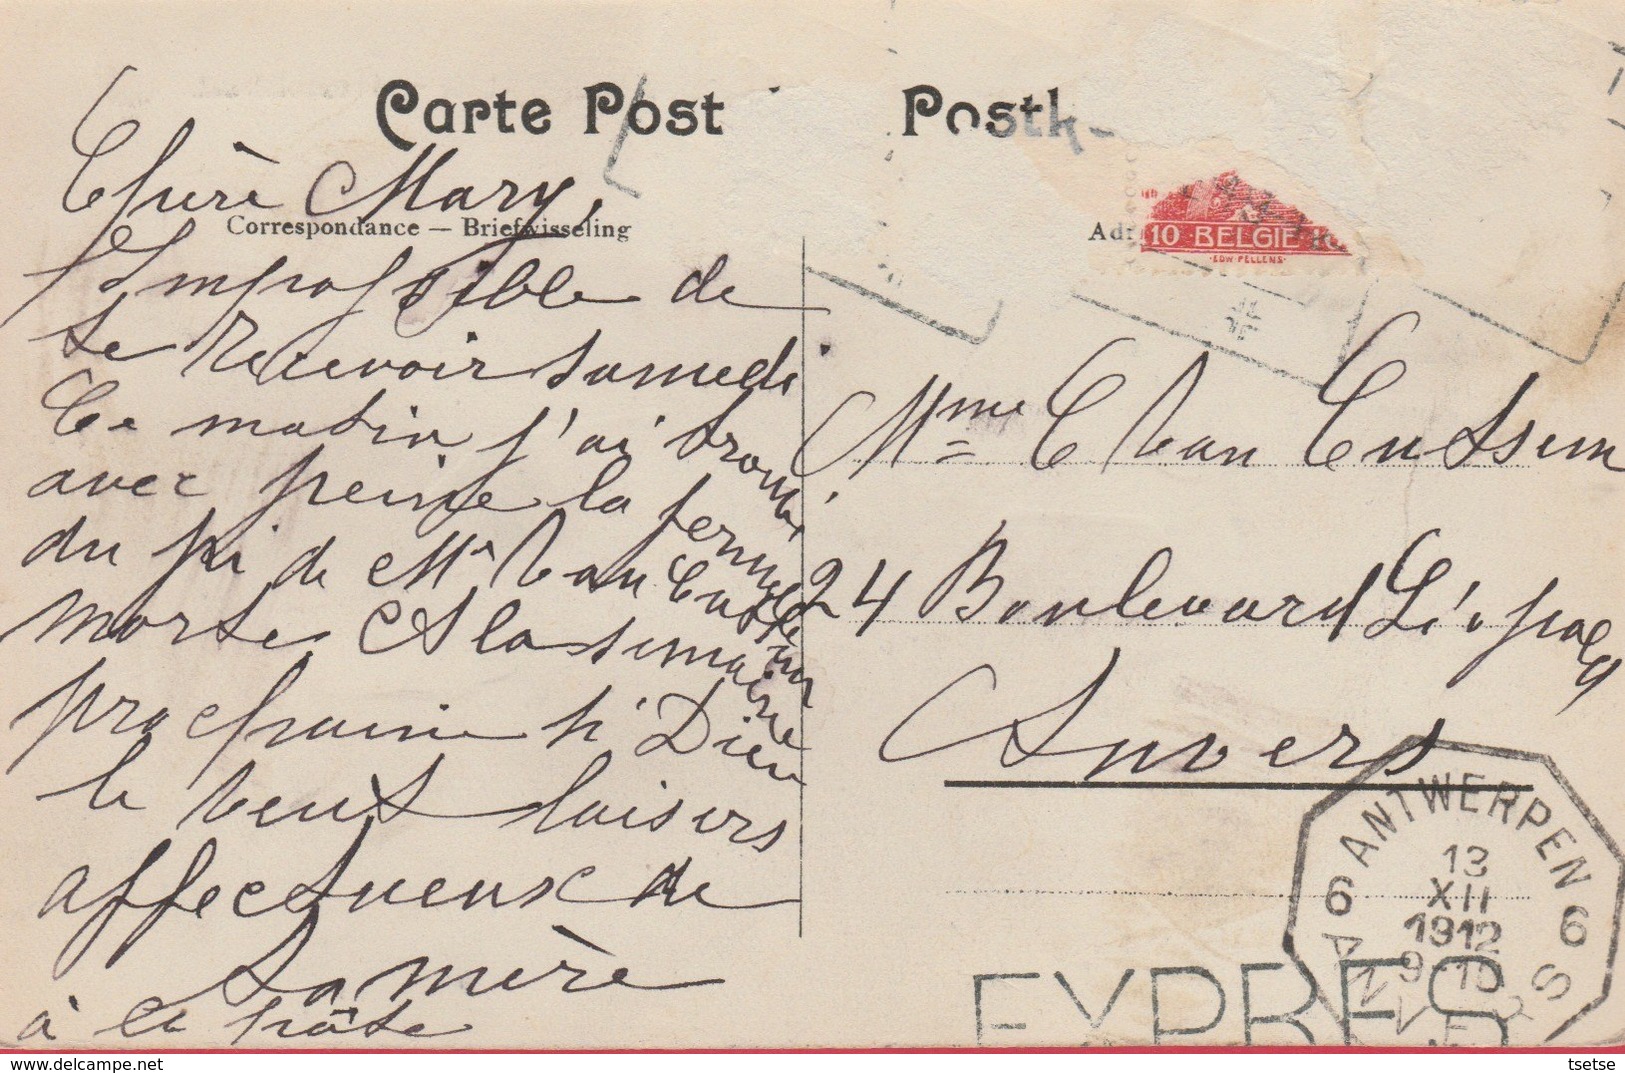 Carte Post
Postk
Correspondance — Briefwisseling
Adr
10 BELGIE
EDW PELLENS
Chère Mary,
Impossible de
te recevoir samedi
Ce matin j'ai trouvé
avec peine la femme
du pi de Mr Van Cutsem
morte et la semaine
prochaine si Dieu
le veut baisers
affectueux de
ta mère
à la hâte
Mme C Van Cutsem
24 Boulevard Léopold
Anvers
ANTWERPEN
6 6
13
XII
1912
9-10
ANVERS
EXPRES
tsetse